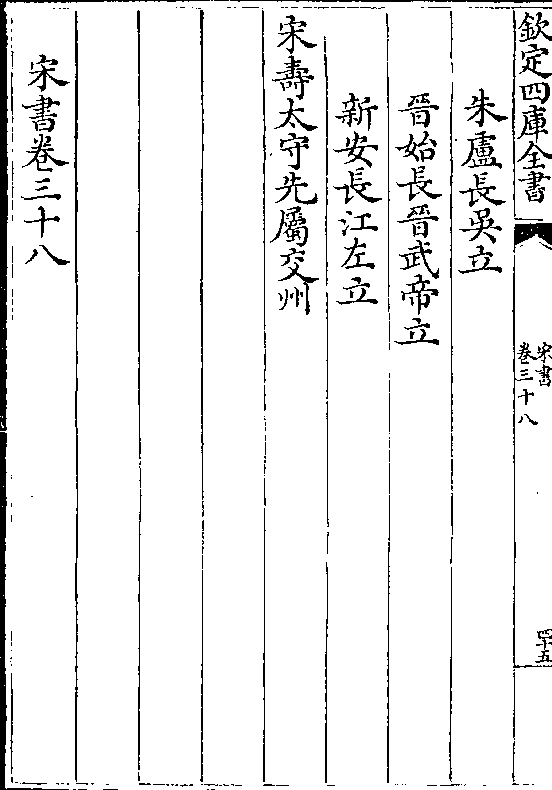 欽定四庫全書
宋書
卷三十八
四十五
朱盧長吳立
晉始長晉武帝立
新安長江左立
宋壽太守先屬交州
宋書卷三十八